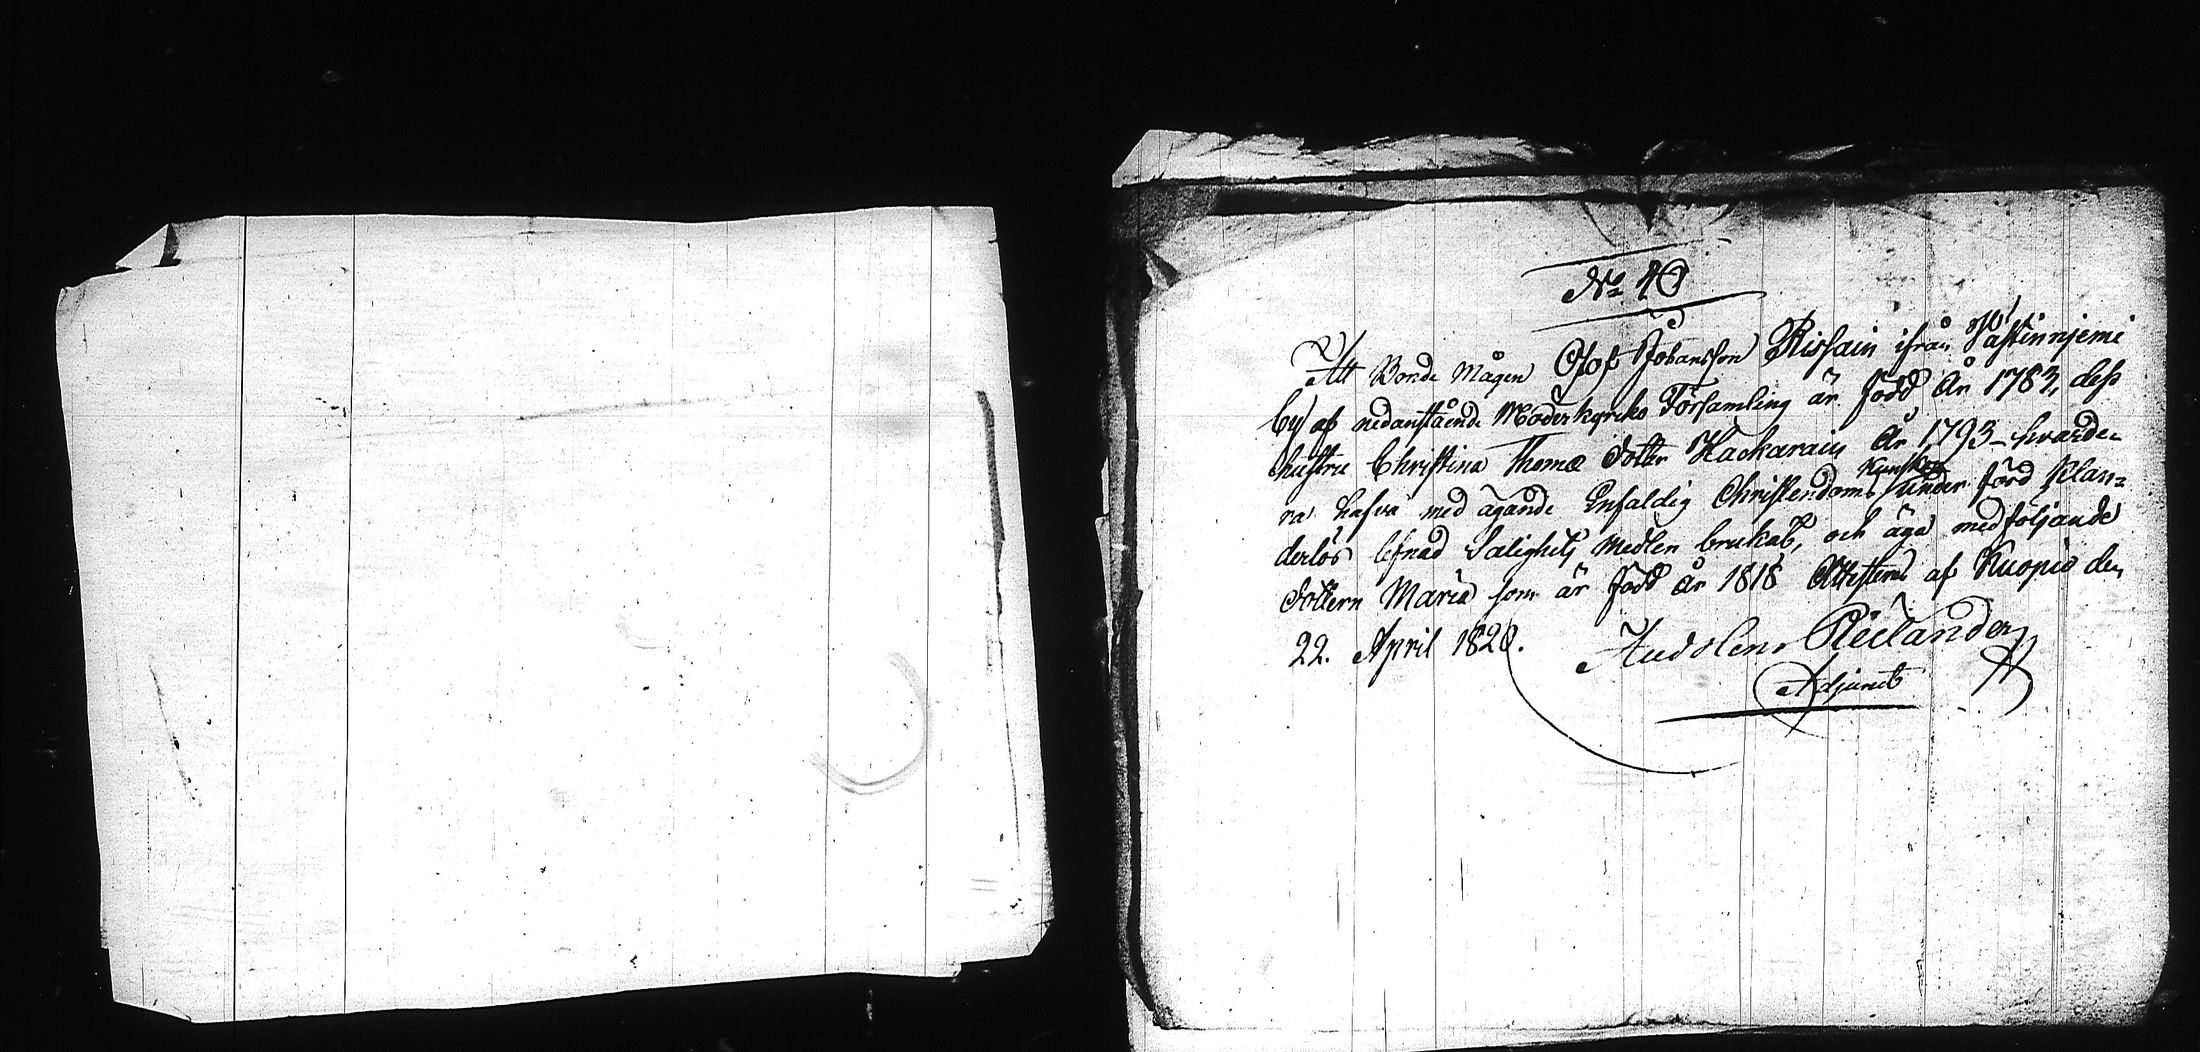 No 40
Att Bonde Mågen Olof Johansson Rissain ifrån Västinnjemi
by af nedanstående Moderkyrko Församling är född år 1783, dess
hustru Christina Thomæ dotter Kackarain år 1793 hvarde-
ra hafva med ägande Enfaldig Christendoms Kunskap under förd klan-
derlös lefnad Salighets Medlen brukat, och äga medföljande
dottern Maria som är född år 1818 Attesteras af Kuopio den
22. April 1820.
Adjunct